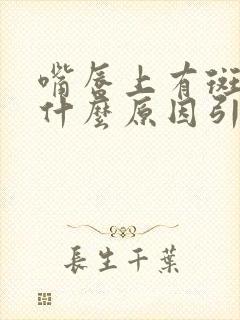 嘴唇上有斑
什麼原因引
長生千葉